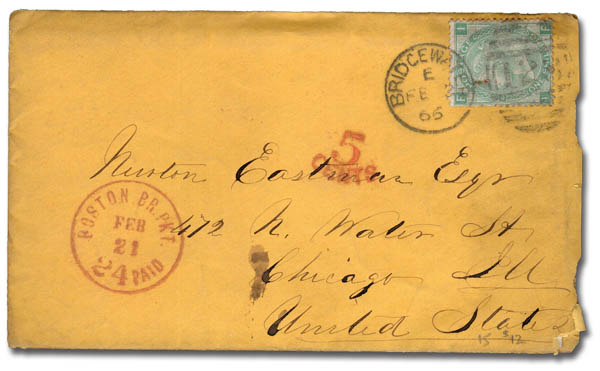 BRIDGEWA
E
FE
66
5
CENTS
Newton Eastman Esqr
BOSTON. BR. PKT.
FEB
21
24 PAID
472 N. Water St
Chicago Ill
United States
15 $12